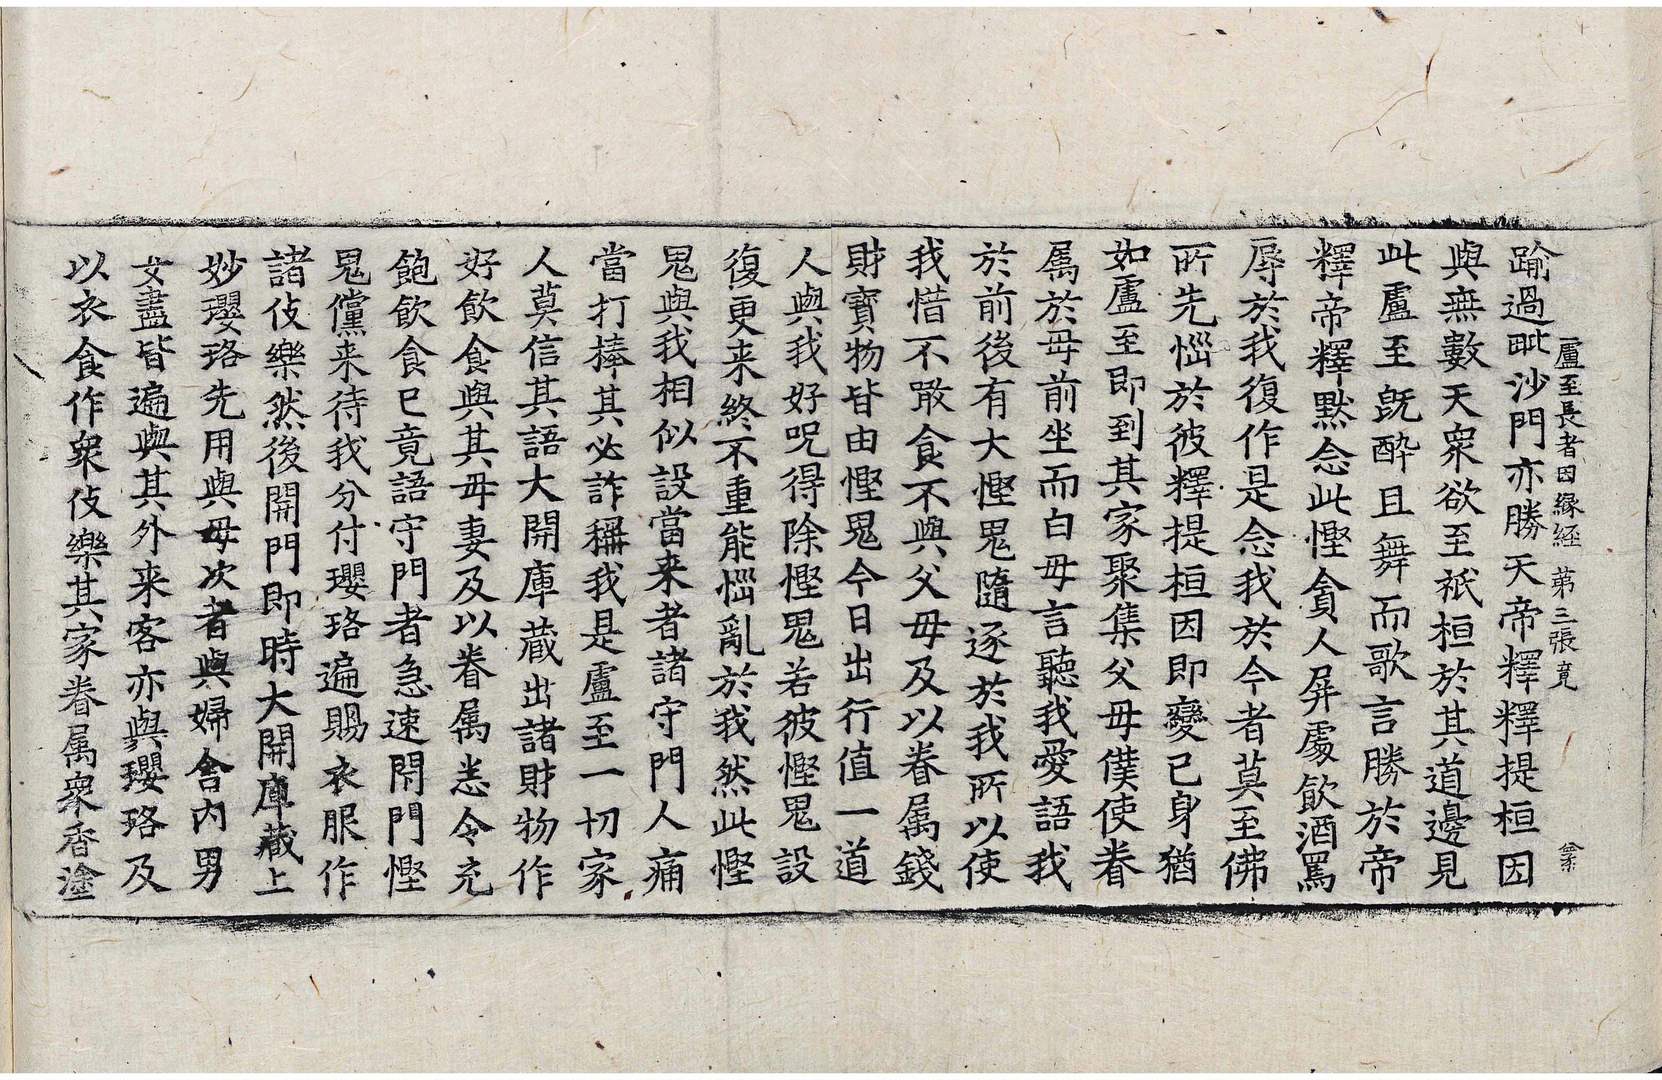 盧至長者因緣經 第三張 竟
踰過毗沙門亦勝天帝釋釋提桓因
與無數天衆欲至祇桓於其道邊見
此盧至旣醉且舞而歌言勝於帝
釋帝釋默念此慳貪人屏處飮酒罵
辱於我復作是念我於今者莫至佛
所先惱於彼釋提桓因即變己身猶
如盧至即到其家聚集父母僕使眷
属於母前坐而白母言聽我愛語我
於前後有大慳鬼隨逐於我所以使
我惜不敢食不與父母及以眷属錢
財寶物皆由慳鬼今日出行值一道
人與我好呪得除慳鬼若彼慳鬼設
復更来終不重能惱亂於我然此慳
鬼與我相似設當来者諸守門人痛
當打棒其必詐稱我是盧至一切家
人莫信其語大開庫藏出諸財物作
好飮食與其母妻及以眷属恣令充
飽飮食已竟語守門者急速閇門慳
鬼儻来待我分付瓔珞遍賜衣服作
諸伎樂然後開門即時大開庫藏上
妙瓔珞先用與母次者與婦舍內男
女盡皆遍與其外来客亦與瓔珞及
以衣食作衆伎樂其家眷属衆香塗